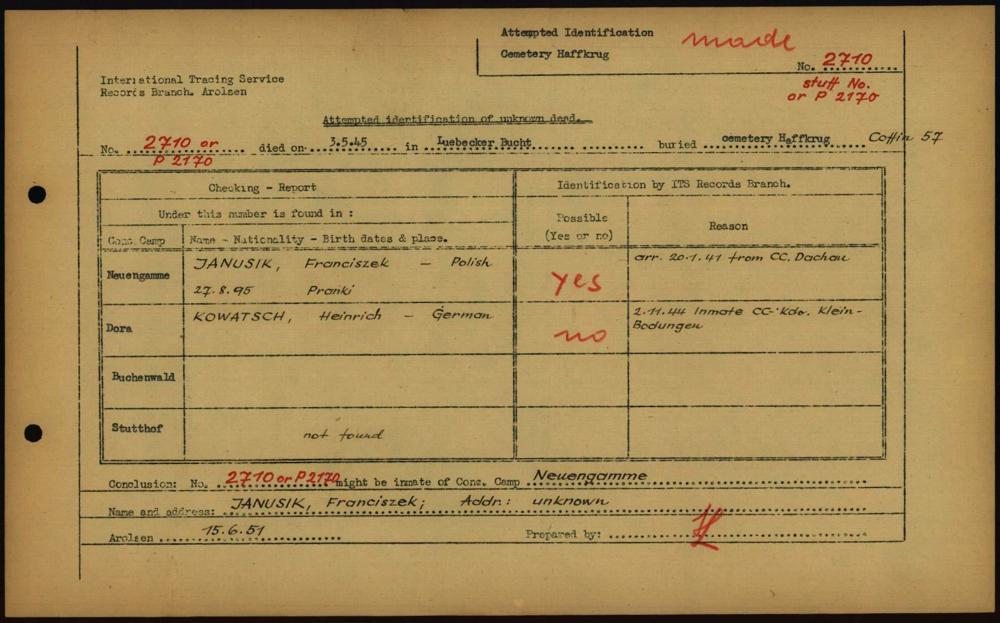 Attempted Identification
Cemetery Haffkrug
made
No. 2710
stuff No.
or P 2170
International Tracing Service
Records Branch. Arolsen
Attempted identification of unknown dead.
No. 2710 or died on 3.5.45 in Luebecker Bucht buried cemetery Haffkrug Coffin 57
P 2170
Checking - Report
Identification by ITS Records Branch.
Under this number is found in :
Possible
(Yes or no)
Reason
Conc. Camp Name - Nationality - Birth dates & place.
Neuengamme JANUSIK, Franciszek - Polish yes arr. 20.1.41 from CC. Dachau
27.8.95 Pranki
Dora KOWATSCH, Heinrich - German no 2.11.44 Inmate CC-Kdo. Klein-
Bodungen
Buchenwald
Stutthof not found
Conclusion: No. 2710 or P 2170 might be inmate of Conc. Camp Neuengamme
Name and address: JANUSIK, Franciszek; Addr.: unknown
Arolsen 15.6.51 Prepared by: